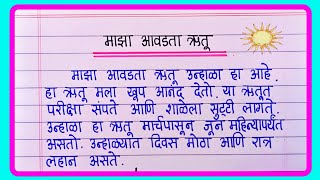 माझा आवडता ऋतू
माझा आवडता ऋतू उन्हाळा हा आहे.
हा ऋतू मला खूप आनंद देतो. या ऋतूत
परीक्षा संपते आणि शाळेला सुट्टी लागते.
उन्हाळा हा ऋतू मार्चपासून जून महिन्यापर्यंत
असतो. उन्हाळ्यात दिवस मोठा आणि रात्र
लहान असते.